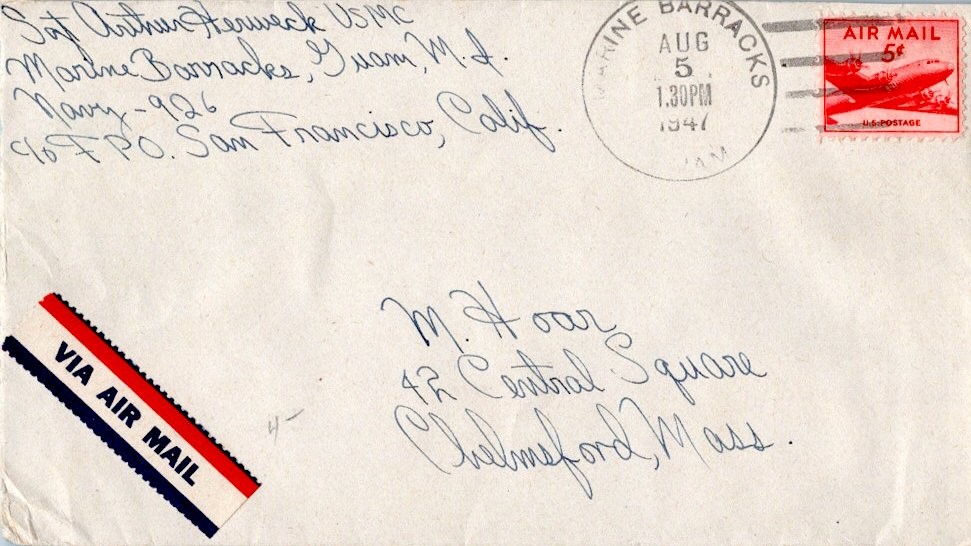 Sgt Arthur Herweck USMC
Marine Barracks, Guam, M. I.
Navy - 926
c/o F P O. San Francisco, Calif.
MARINE BARRACKS
AUG
5
1.30PM
1947
GUAM
AIR MAIL
5¢
U.S. POSTAGE
M. Hoar
42 Central Square
Chelmsford, Mass.
VIA AIR MAIL
4-